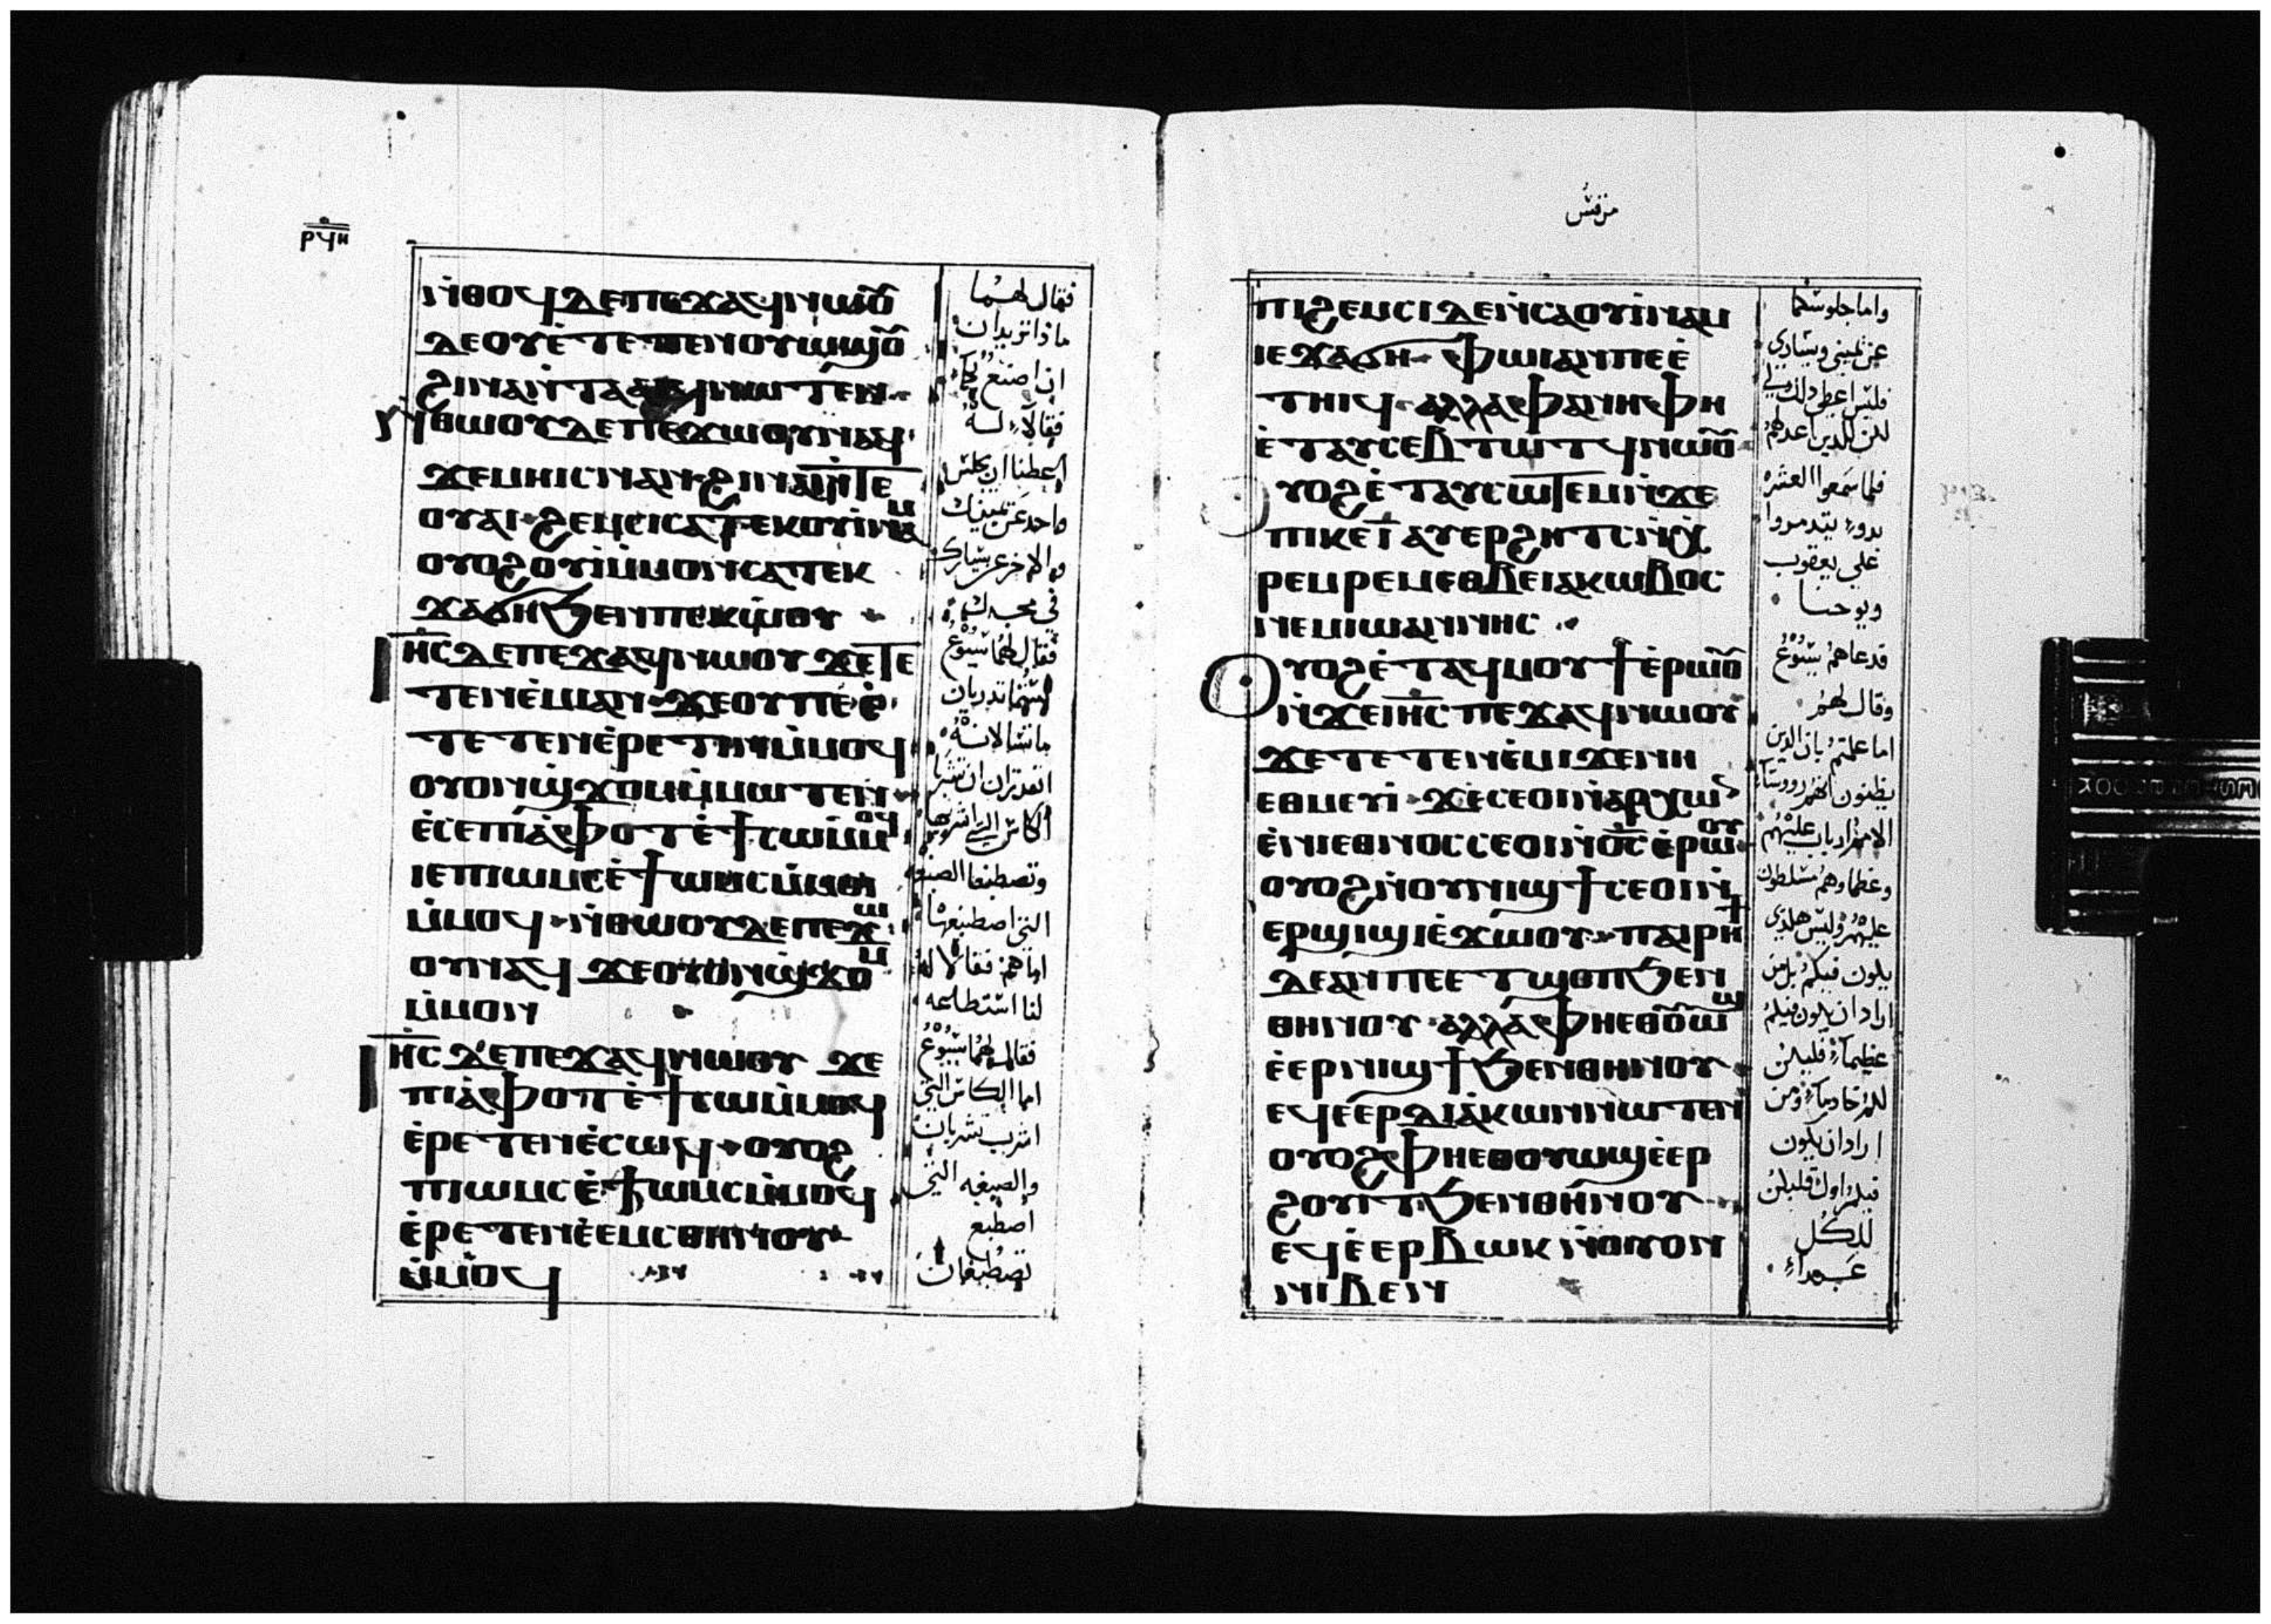 ⲣϥⲏ
ⲛ̇ⲑⲟϥ ⲇⲉ ⲡⲉϫⲁϥ ⲛⲱⲟⲩ
ϫⲉ ⲟⲩ ⲉ̇ⲧⲉⲧⲉⲛⲟⲩⲱϣϥ
ϩⲓⲛⲁ ⲛ̇ⲧⲁⲁⲓϥ ⲛⲱⲧⲉⲛ
ⲛ̇ⲑⲱⲟⲩ ⲇⲉ ⲡⲉϫⲱⲟⲩ ⲛⲁϥ
ϫⲉ ⲙⲏⲓⲥ ⲛⲁⲛ ϩⲓⲛⲁ ⲛ̇ⲧⲉ
ⲟⲩⲁⲓ ϩⲉⲙⲥⲓ ⲥⲁⲧⲉⲕⲟⲩⲓ̇ⲛⲁⲙ
ⲟⲩⲟϩ ⲟⲩⲓ̇ ⲙ̇ⲙⲟⲛ ⲥⲁⲡⲉⲕ
ϫⲁϭⲏ ϧⲉⲛ ⲡⲉⲕⲱ̇ⲟⲩ
ⲓⲏⲥ ⲇⲉ ⲡⲉϫⲁϥ ⲛⲱⲟⲩ ϫⲉ ⲧⲉ
ⲧⲉⲛⲉ̇ⲙⲓ ⲁⲛ ϫⲉ ⲟⲩ ⲡⲉ ⲉ̇
ⲧⲉⲧⲉⲛⲉ̇ⲣⲉⲧⲓⲛ ⲙ̇ⲙⲟϥ
ⲟⲩⲟⲛ ϣϫⲟⲙ ⲙ̇ⲙⲱⲧⲉⲛ
ⲉ̇ⲥⲉ ⲡⲓⲁ̇ⲫⲟⲧ ⲉ̇ϯⲥⲱ ⲙ̇ⲙⲟϥ
ⲓⲉ ⲡⲓⲱⲙⲥ ⲉ̇ϯⲱⲙⲥ ⲙ̇ⲙⲟⲓ
ⲙ̇ⲙⲟϥ ⲛ̇ⲑⲱⲟⲩ ⲇⲉ ⲡⲉϫⲱ
ⲟⲩ ⲛⲁϥ ϫⲉ ⲟⲩⲟⲛ ϣϫⲟⲙ
ⲙ̇ⲙⲟⲛ
ⲓⲏⲥ ⲇⲉ ⲡⲉϫⲁϥ ⲛⲱⲟⲩ ϫⲉ
ⲡⲓⲁ̇ⲫⲟⲧ ⲉ̇ϯⲥⲱ ⲙ̇ⲙⲟϥ
ⲉ̇ⲣⲉⲧⲉⲛⲉ̇ⲥⲱϥ ⲟⲩⲟϩ
ⲡⲓⲱⲙⲥ ⲉ̇ϯⲱⲙⲥ ⲙ̇ⲙⲟϥ
ⲉ̇ⲣⲉⲧⲉⲛⲉ̇ⲉⲙⲥ ⲑⲏⲛⲟⲩ
ⲙ̇ⲙⲟϥ
فقال لهما
ماذا تريدان
ان اصنع لكما
فقالا له
اعطنا ان يجلس
واحد عن يمينك
والاخر عن يسارك
في مجدك
فقال لهما يسوع
لستما تدريان
ما تسالانه
اتقدران ان تشربا
الكاس التي اشربها
وتصطبغا الصبغه
التي اصطبغها
اما هم فقالا له
لنا استطاعه
فقال لهما يسوع
اما الكاس التي
اشرب تشربان
والصبغه التي
اصطبغ
تصطبغان
مرقس
ⲡⲓϩⲉⲙⲥⲓ ⲇⲉ ⲛ̇ⲥⲁⲟⲩⲓ̇ⲛⲁⲙ
ⲓⲉ ϫⲁϭⲏ ⲫⲱⲓ ⲁⲛ ⲡⲉ ⲉ̇
ⲧⲏⲓϥ ⲁⲗⲗⲁ ⲫⲁⲛⲏ ⲫⲏ
ⲉ̇ⲧⲁⲩⲥⲉⲃⲧⲱⲧϥ ⲛⲱⲟⲩ
ⲟⲩⲟϩ ⲉ̇ⲧⲁⲩⲥⲱⲧⲉⲙ ⲛ̇ϫⲉ
ⲡⲓⲕⲉⲓ̅ ⲁⲩⲉⲣϩⲏⲧⲥ ⲛ̇ⲭ
ⲣⲉⲙⲣⲉⲙ ⲉⲑⲃⲉ ⲓⲁⲕⲱⲃⲟⲥ
ⲛⲉⲙ ⲓⲱⲁⲛⲛⲏⲥ
ⲟⲩⲟϩ ⲉ̇ⲧⲁϥⲙⲟⲩϯ ⲉ̇ⲣⲱⲟⲩ
ⲛ̇ϫⲉ ⲓⲏⲥ ⲡⲉϫⲁϥ ⲛⲱⲟⲩ
ϫⲉ ⲧⲉⲧⲉⲛⲉ̇ⲙⲓ ϫⲉ ⲛⲏ
ⲉⲑⲙⲉⲩⲓ̇ ϫⲉ ⲥⲉⲟⲓ ⲛ̇ⲁⲣⲭⲱⲛ
ⲉ̇ⲛⲓⲉⲑⲛⲟⲥ ⲥⲉⲟⲓ ⲛ̇ⲟ̅ⲥ̅ ⲉ̇ⲣⲱⲟⲩ
ⲟⲩⲟϩ ⲛ̇ⲟⲩⲛⲓϣϯ ⲥⲉⲟⲓ ⲛ̇
ⲉⲣϣⲓϣⲓ ⲉ̇ϫⲱⲟⲩ ⲡⲁⲓⲣⲏϯ
ⲇⲉ ⲁⲛ ⲡⲉⲧϣⲟⲡ ϧⲉⲛ
ⲑⲏⲛⲟⲩ ⲁⲗⲗⲁ ⲫⲏ ⲉⲑⲟⲩⲱϣ
ⲉ̇ⲉⲣⲛⲓϣϯ ϧⲉⲛ ⲑⲏⲛⲟⲩ
ⲉϥⲉ̇ⲉⲣⲇⲓⲁ̇ⲕⲱⲛ ⲛⲱⲧⲉⲛ
ⲟⲩⲟϩ ⲫⲏ ⲉⲑⲟⲩⲱϣ ⲉ̇ⲉⲣ
ϩⲟⲩⲓⲧ ϧⲉⲛ ⲑⲏⲛⲟⲩ
ⲉϥⲉ̇ⲉⲣⲃⲱⲕ ⲛ̇ⲟⲩⲟⲛ
ⲛⲓⲃⲉⲛ
واما جلوسكما
عن يميني ويساري
فليس اعطي ذلك لي
لكن للذين اعد لهم
فلما سمعوا العشره
بدوا يتدمروا
علي يعقوب
ويوحنا
فدعاهم يسوع
وقال لهم
اما علمتم بان الذين
يظنون انهم رووساء
الامم ارباب عليهم
وعظماوهم مسلطون
عليهم وليس هكذي
يكون فيكم بل من
اراد ان يكون فيكم
عظيما فليكن
لكم خادما ومن
اراد ان يكون
فيكم اولا فليكن
للكل
عبدا